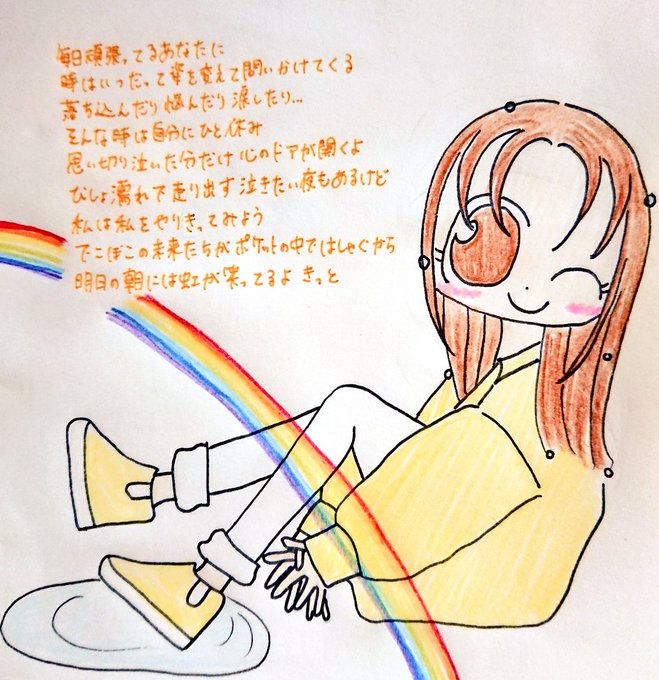 毎日頑張ってるあなたに
時はいつだって姿を変えて問いかけてくる
落ち込んだり悩んだり涙したり…
そんな時は自分にひと休み
思い切り泣いた分だけ心のドアが開くよ
びしょ濡れで走り出す泣きたい夜もあるけど
私は私をやりきってみよう
でこぼこの未来たちがポケットの中ではしゃぐから
明日の朝には虹が笑ってるよ きっと